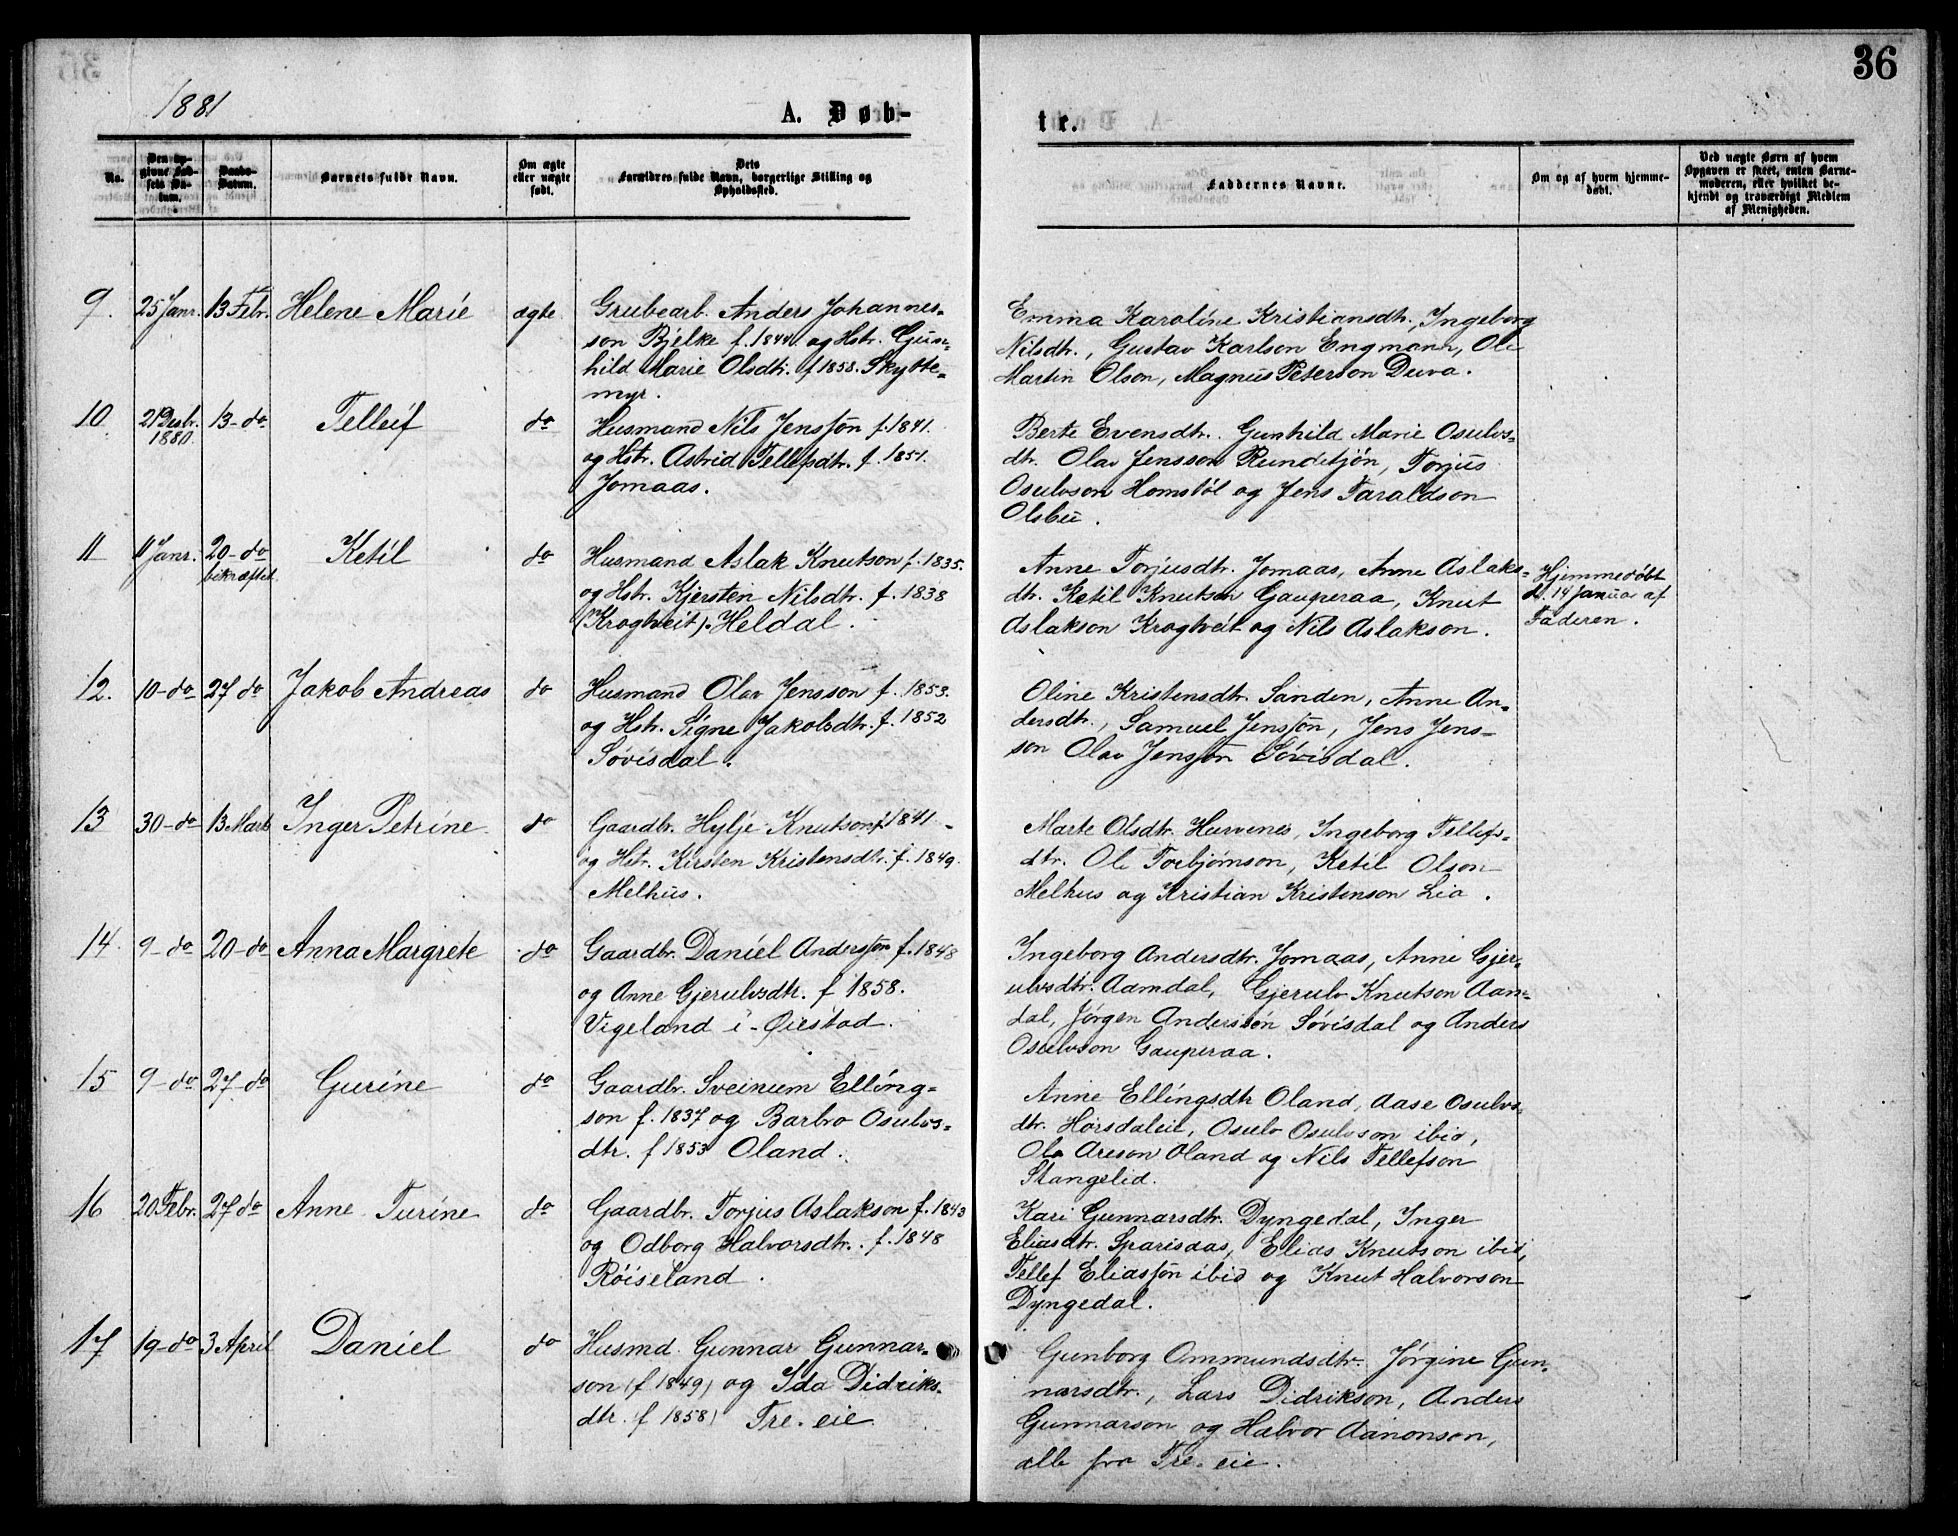 36
1881
A. Døb-
tr.
No.
Den op-
givne Fød-
sels Da-
tum.
Daabs-
Datum.
Barnets fulde Navn.
Om ægte
eller uægte
født.
Dets
Forældres fulde Navn, borgerlige Stilling og
Opholdssted.
Faddernes Navne.
Om og af hvem hjemme-
døbt.
Ved uægte Børn af hvem
Opgaven er skeet, enten Barne-
moderen, eller hvilket be-
kjendt og troværdigt Medlem
af Menigheden.
9. 25 Janr. 13 Febr. Helene Marie ægte
Grubearb. Anders Johannes-
son Bjelke f. 1844 og Hstr. Gun-
hild Marie Olsdtr. f 1858. Skytte-
myr.
Emma Karoline Kristiansdtr., Ingeborg
Nilsdtr., Gustav Karlson Engmann, Ole
Martin Olson, Magnus Peterson Duva.
10. 21 Desbr. 1880. 13 - do Tellef do
Husmand Nils Jensson f. 1841.
og Hstr. Astrid Tellefsdtr. f. 1851.
Jomaas.
Berte Evensdtr. Gunhild Marie Osulvs-
dtr. Olav Jensson Rundetjøn, Torjus
Osulvson Homstøl og Jens Taraldson
Olsbu.
11 11 Janr. 20 - do bekræftet Ketil do
Husmand Aslak Knutson f. 1835.
og Hstr. Kjersten Nilsdtr. f. 1838
(Krogtveit). Heldal.
Anne Torjusdtr. Jomaas, Anne Aslaks-
dtr. Ketil Knutson Gauperaa, Knut
Aslakson Krogtveit og Nils Aslakson.
Hjemmedøbt
d. 14 Januar af
Faderen.
12. 10 - do 27 do Jakob Andreas do
Husmand Olav Jensson f. 1853.
og Hstr. Signe Jakobsdtr. f. 1852
Søvisdal.
Oline Kristensdtr. Sanden, Anne An-
dersdtr., Samuel Jensson, Jens Jens-
son Olav Jensson Søvisdal.
13 30 - do 13 Marts Inger Petrine do
Gaardbr. Hylje Knutson f 1841
og Hstr. Kirsten Kristensdtr. f. 1849.
Melhus.
Marte Olsdtr. Hurvenes, Ingeborg Tellefs-
dtr. Ole Torbjørnson, Ketil Olson
Melhus og Kristian Kristenson Lia.
14. 9 - do 20 - do Anna Margrete do
Gaardbr. Daniel Andersson f. 1848
og Anne Gjerulvsdtr. f 1858.
Vigeland i Øiestad.
Ingeborg Andersdtr. Jomaas, Anne Gjer-
ulvsdtr. Aamdal, Gjerulv Knutson Aam-
dal, Jørgen Andersson Søvisdal og Anders
Osulvson Gauperaa.
15 9 - do 27 - do Gurine do
Gaardbr. Sveinum Elling-
son f. 1837 og Barbro Osulvs-
dtr. f 1853 Oland.
Anne Ellingsdtr Oland, Aase Osulvs
dtr. Horsdaleie, Osulv Osulvson ibid,
Ola Areson Oland og Nils Tellefson
Stangelid.
16 20 Febr. 27 do Anne Turine do
Gaardbr. Torjus Aslakson f. 1843
og Odborg Halvorsdtr. f. 1848
Røiseland.
Kari Gunnarsdtr. Dyngedal, Inger
Eliasdtr. Sparisaas, Elias Knutson ibid,
Tellef Eliasson ibid og Knut Halvorson
Dyngedal.
17 19 - do 3 April Daniel do
Husmd. Gunnar Gunnar-
son (f 1849) og Ida Didriks-
dtr. (f 1858) Tre-eie
Gunborg Ommundsdtr. Jørgine Gun-
narsdtr., Lars Didrikson, Anders
Gunnarson og Halvor Aanonson,
alle fra Tre-eie.